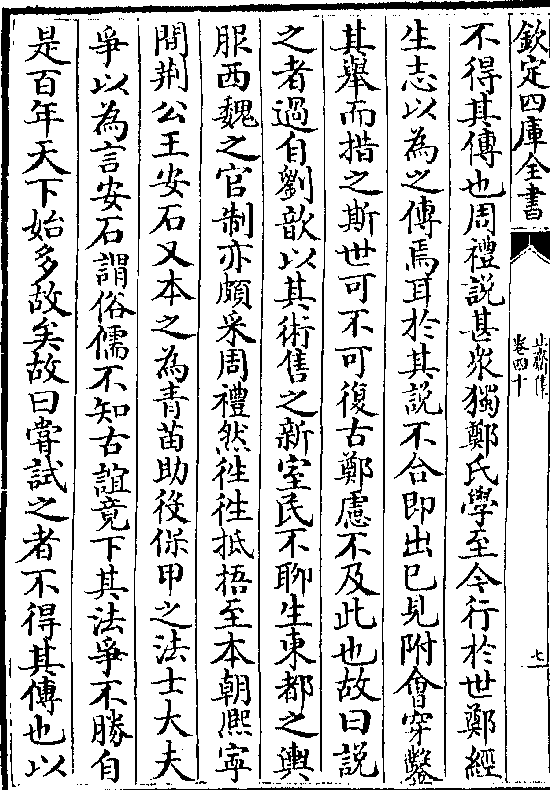 欽定四庫全書
止齋集
卷四十
七
不得其傳也周禮說甚衆獨鄭氏學至今行於世鄭經
生志以為之傳焉耳於其說不合即出已見附會穿鑿
其舉而措之斯世可不可復古鄭慮不及此也故曰說
之者過自劉歆以其術售之新室民不聊生東都之輿
服西魏之官制亦頗采周禮然徃徃抵捂至本朝熈寜
間荆公王安石又本之為青苗助役保甲之法士大夫
爭以為言安石謂俗儒不知古誼竟下其法爭不勝自
是百年天下始多故矣故曰嘗試之者不得其傳也以